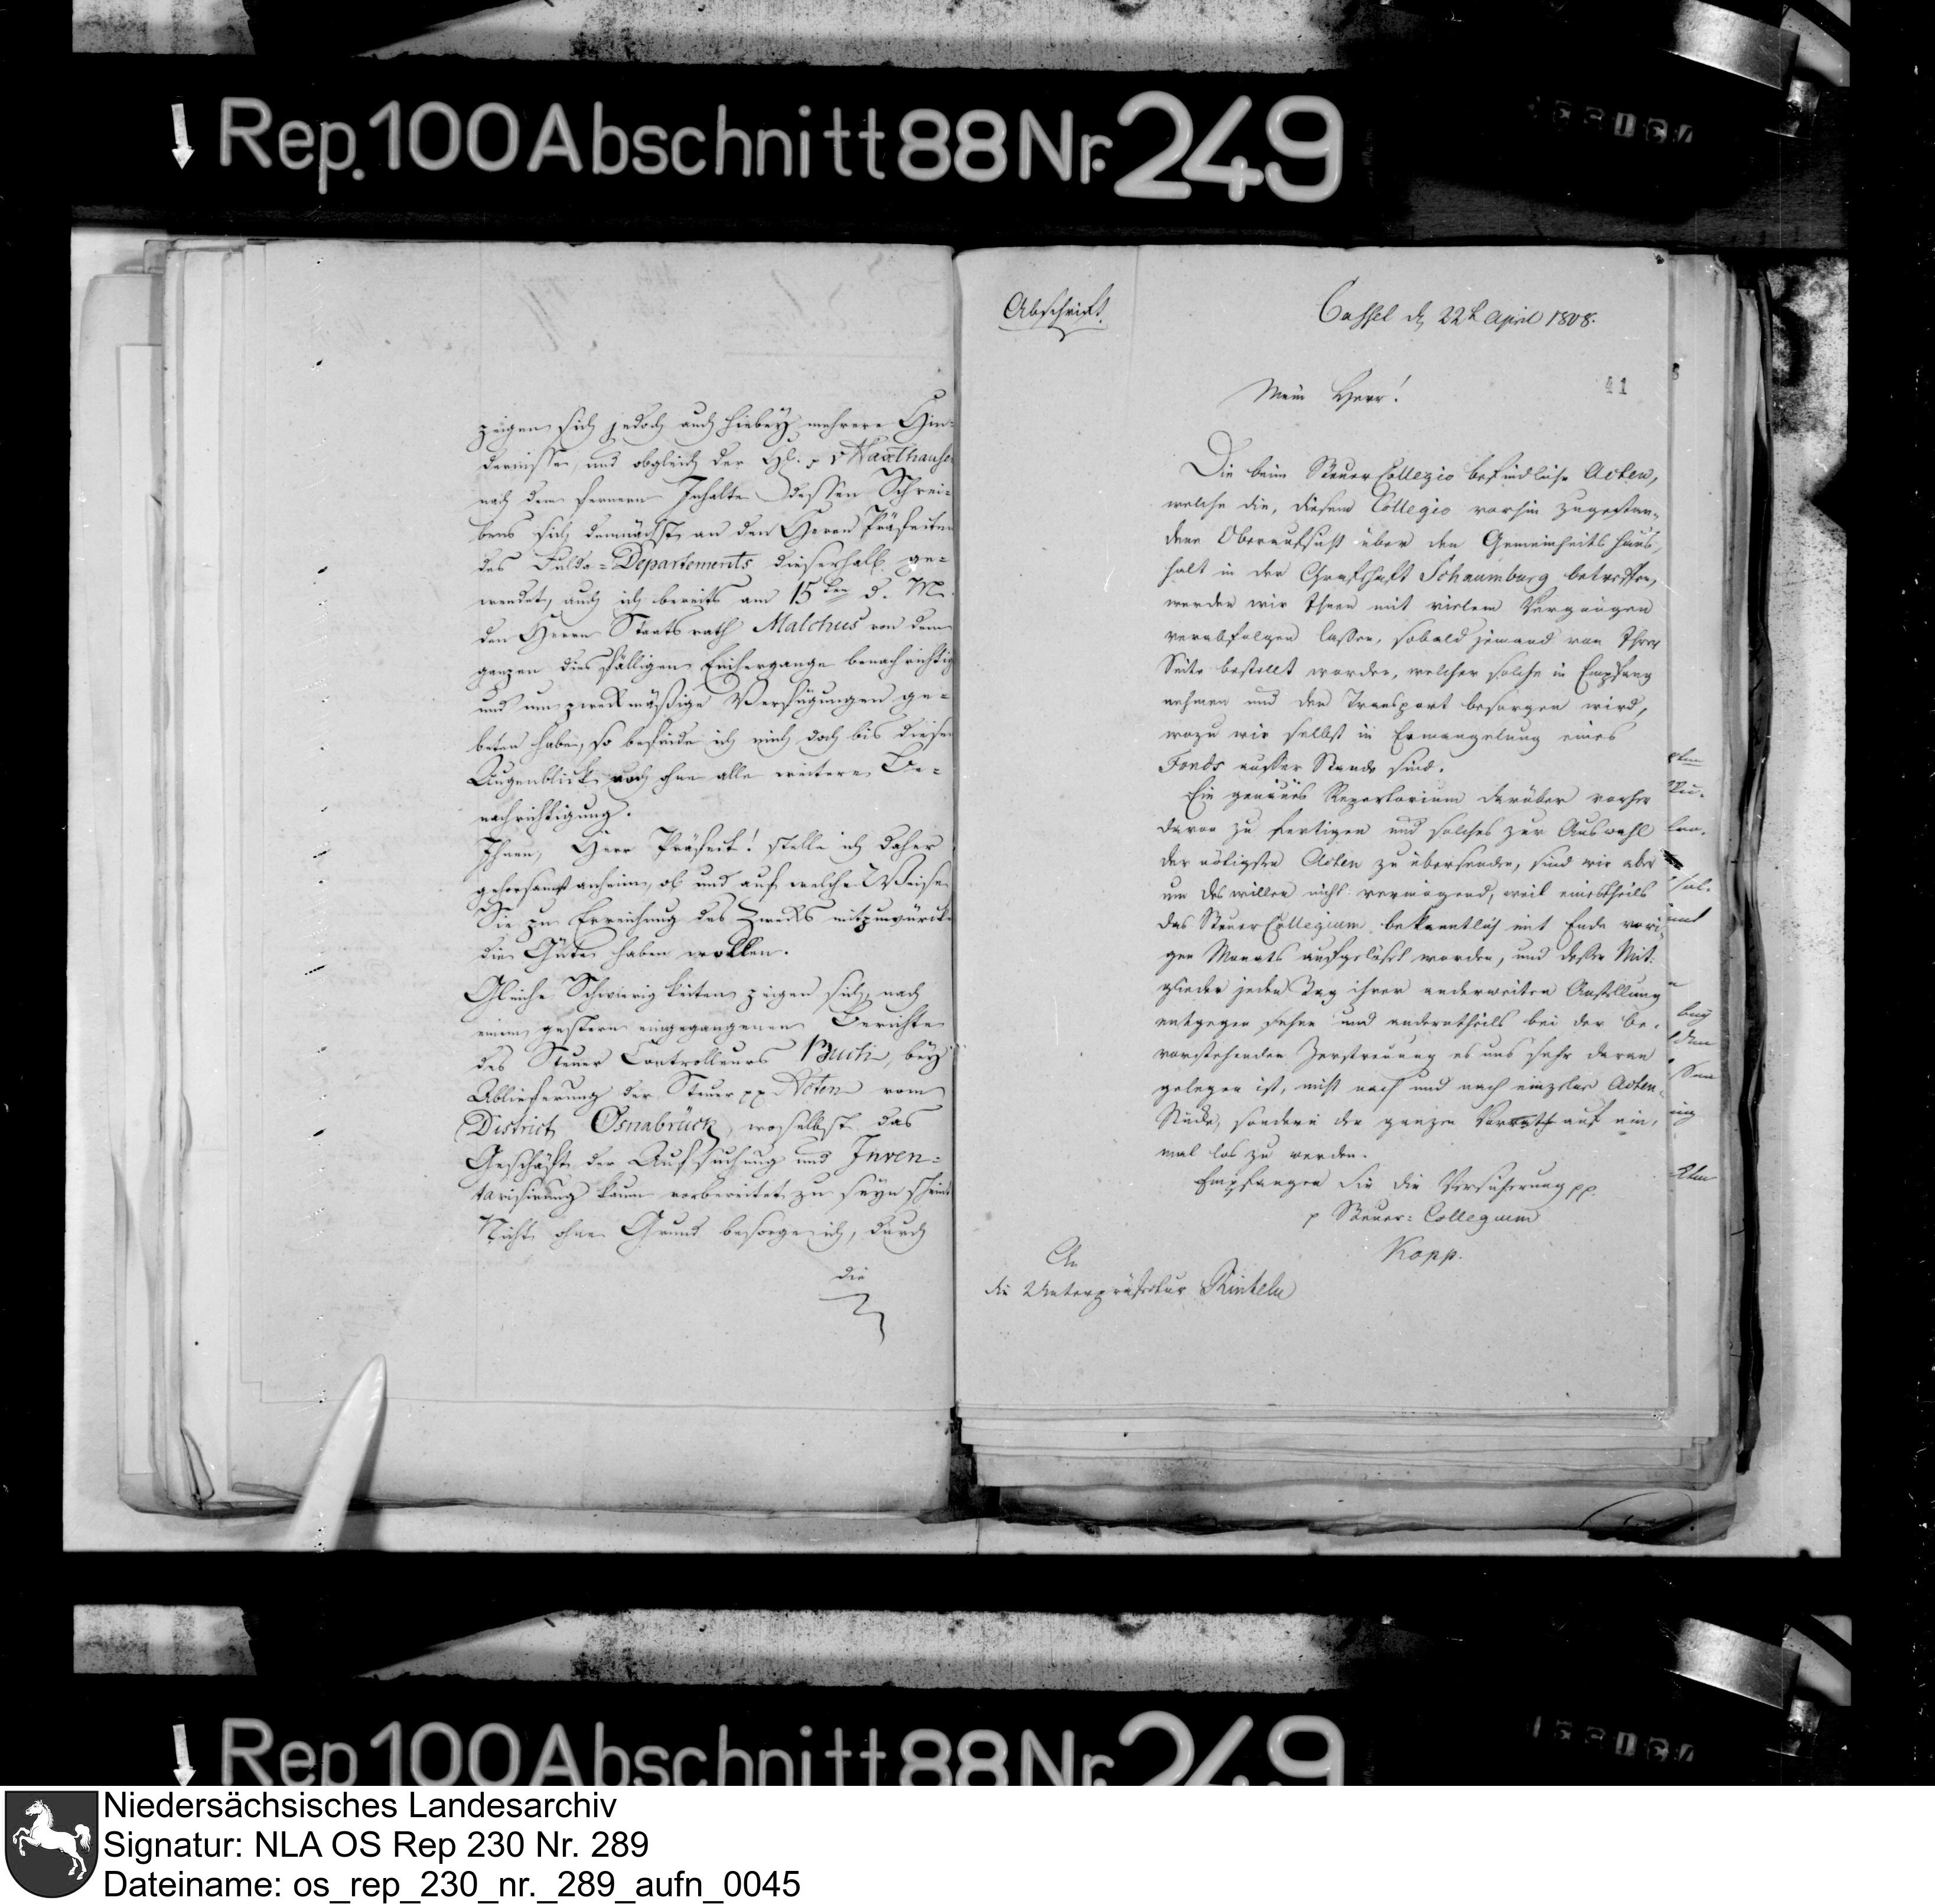 Rep. 100 Abschnitt 88 Nr. 249
zeigen sich jedoch auch hiebey mehrere Hin-
dernisse, und obgleich der H. p v Haxthausen
nach dem fernern Inhalte dessen Schrei-
bens sich demnächst an den Herrn Präfecten
des Fulda-Departements dieserhalb ge-
wendet, auch ich bereits am 15ten d. M.
den Herrn Staatsrath Malchus von dem
ganzen diesfälligen Hergange benachrichtigt
und um zweckmäßige Verfügungen ge-
beten habe, so befinde ich mich doch bis diesen
Augenblick noch ohne alle weitere Be-
nachrichtigung.
Ihnen, Herr Präfect! stelle ich daher
gehorsamst anheim, ob und auf welche Weise
Sie zu Erreichung des Zwecks mitzuwürken
die Güte haben wollen.
Gleiche Schwierigkeiten zeigen sich, nach
einem gestern eingegangenen Berichte
des Steuer Controlleurs Buch, bey
Ablieferung der Steuer pp Acten vom
District Osnabrück, woselbst das
Geschäft der Aufsuchung und Inven-
tarisirung kaum vorbereitet zu seyn scheint
Nicht ohne Grund besorge ich, durch
die
Abschrift.
Cassel d. 22t April 1808.
41
Mein Herr!
Die beim Steuer Collegio befindliche Acten,
welche die, diesem Collegio vorhin zugestan-
dene Oberaufsicht über den Gemeinheits Haus-
halt in der Grafschaft Schaumburg betreffen,
werden wir Ihnen mit vielem Vergnügen
verabfolgen lassen, sobald jemand von Ihrer
Seite bestellt worden, welcher solche in Empfang
nehmen und den Transport besorgen wird,
wozu wir selbst in Ermangelung eines
Fonds ausser Stande sind.
Ein genaues Repertorium darüber vorher
davon zu fertigen und solches zur Auswahl
der nötigsten Acten zu übersenden, sind wir aber
um deswillen nicht vermögend, weil einestheils
das Steuer Collegium bekanntlich mit Ende vori-
gen Monats aufgelößt worden, und dessen Mit-
glieder jeden Tag ihrer anderweiten Anstellung
entgegen sehen und anderntheils bei der be-
vorstehenden Zerstreuung es uns sehr daran
gelegen ist, nicht nach und nach einzelne Acten-
Stücke, sondern den ganzen Vorrath auf ein-
mal los zu werden.
Empfangen Sie die Versicherung pp.
p Steuer-Collegium
Kopp.
An
die Unterpräfectur Rinteln
Rep 100 Abschnitt 88 Nr. 249
Niedersächsisches Landesarchiv
Signatur: NLA OS Rep 230 Nr. 289
Dateiname: os_rep_230_nr._289_aufn_0045